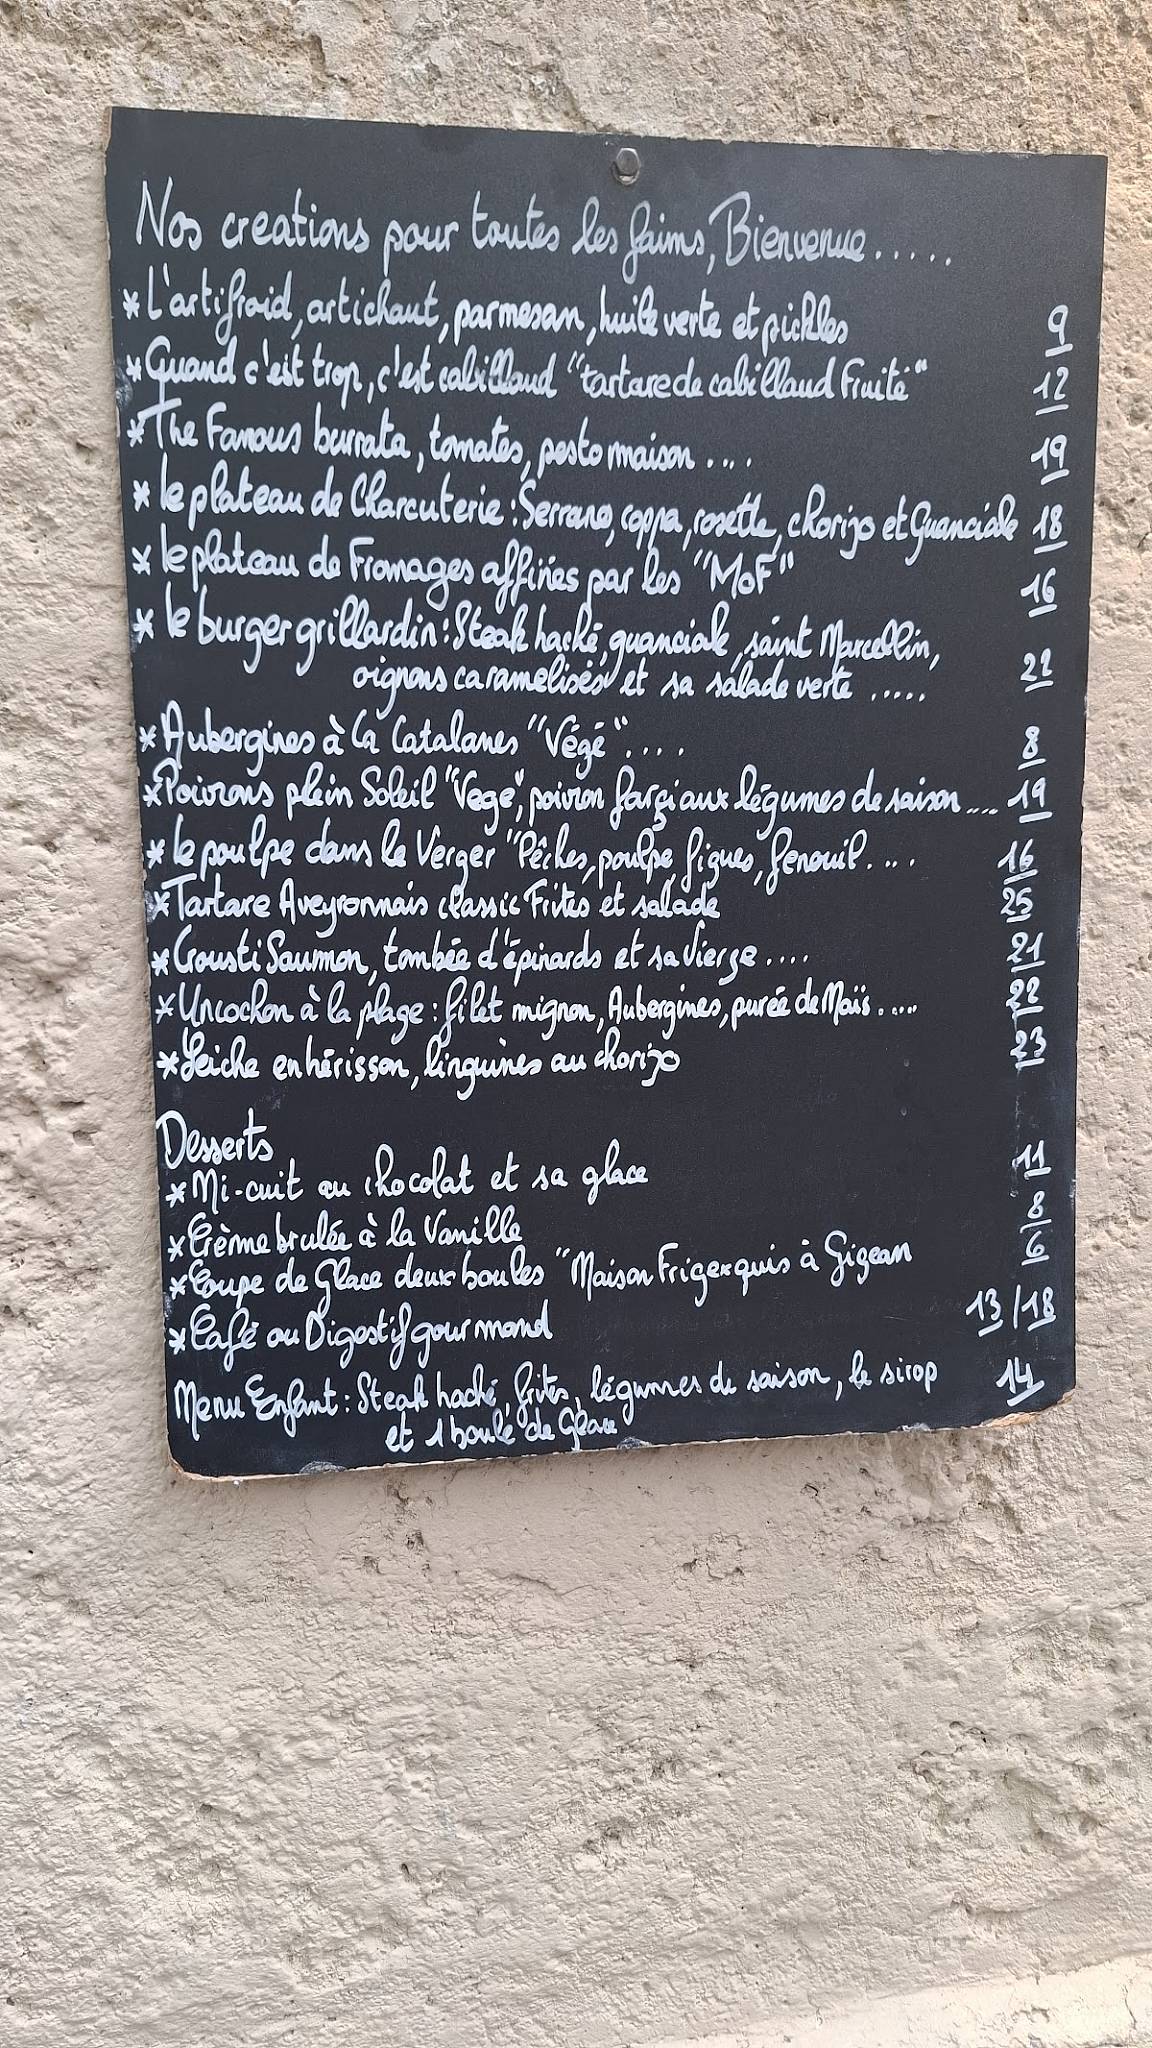 Nos creations pour toutes les faims, Bienvenue.....
* L'artifroid, artichaut, parmesan, huile verte et pickles 9
* Quand c'est trop, c'est cabillaud "tartare de cabillaud Fruité" 12
* The Famous burrata, tomates, pesto maison .... 19
* le plateau de Charcuterie : Serrano, coppa, rosette, chorizo et Guanciale 18
* le plateau de Fromages affinés par les "MOF" 16
* le burger grillardin : Steak haché, guanciale, saint Marcellin, 22
oignons caramelisés et sa salade verte .....
* Aubergines à la Catalanes "Végé".... 8
* Poivrons plein Soleil "Vege", poivron farçi aux légumes de saison .... 19
* le poulpe dans le Verger "Pêches, poulpe, figues, fenouil .... 16
* Tartare Aveyronnais classic Frites et salade 25
* Crousti Saumon, tombée d'épinards et sa Vierge .... 21
* Un cochon à la plage : filet mignon, Aubergines, purée de Maïs ..... 22
* Seiche en hérisson, linguines au chorizo 23
Desserts
* Mi-cuit au chocolat et sa glace 11
* Crème brulée à la Vanille 8
* Coupe de Glace deux boules "Maison Frigexquis à Gigean 6
* Café ou Digestif gourmand 13/18
Menu Enfant : Steak haché, frites, légumes de saison, le sirop 14
et 1 boule de Glace